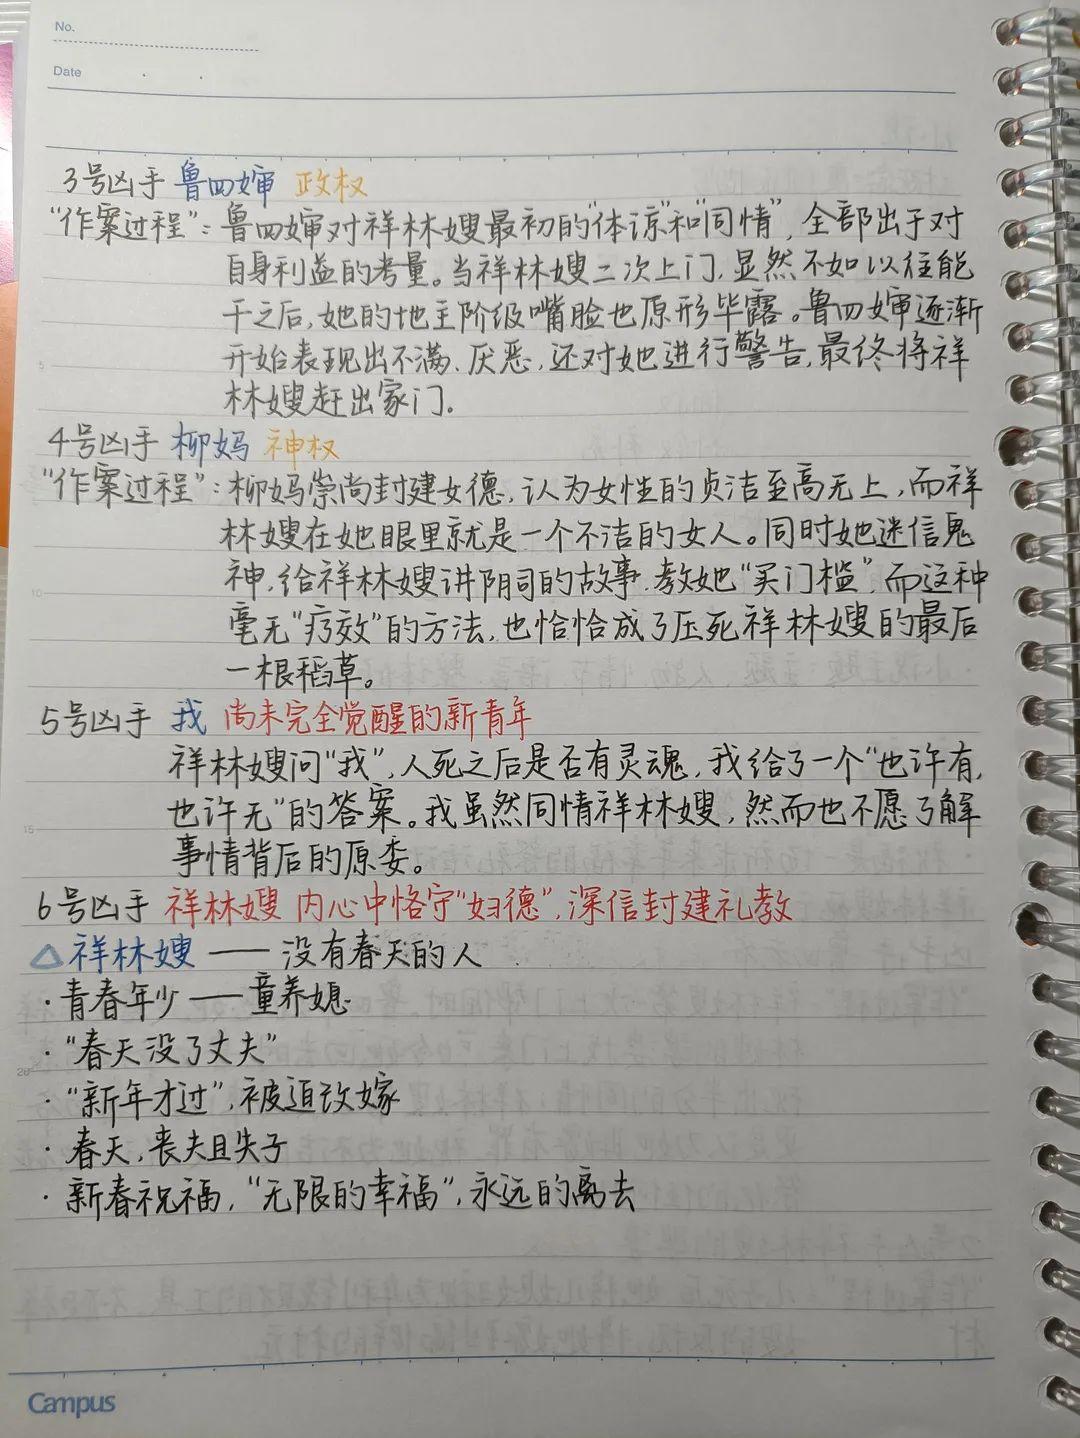 No.
Date
3号凶手 鲁四婶 政权
“作案过程”：鲁四婶对祥林嫂最初的“体谅”和“同情”，全部出于对
自身利益的考量。当祥林嫂二次上门，显然不如以往能
干之后，她的地主阶级嘴脸也原形毕露。鲁四婶逐渐
开始表现出不满、厌恶，还对她进行警告，最终将祥
林嫂赶出家门。
4号凶手 柳妈 神权
“作案过程”：柳妈崇尚封建女德，认为女性的贞洁至高无上，而祥
林嫂在她眼里就是一个不洁的女人。同时她迷信鬼
神，给祥林嫂讲阴间的故事，教她“买门槛”，而这种
毫无“疗效”的方法，也恰恰成了压死祥林嫂的最后
一根稻草。
5号凶手 我 尚未完全觉醒的新青年
祥林嫂问“我”，人死之后是否有灵魂，我给了一个“也许有，
也许无”的答案。我虽然同情祥林嫂，然而也不愿了解
事情背后的原委。
6号凶手 祥林嫂 内心中恪守“妇德”，深信封建礼教
△祥林嫂——没有春天的人
·青春年少——童养媳
·“春天没了丈夫”
·“新年才过”，被迫改嫁
·春天，丧夫且失子
·新春祝福，“无限的幸福”，永远的离去
5
10
15
20
Campus